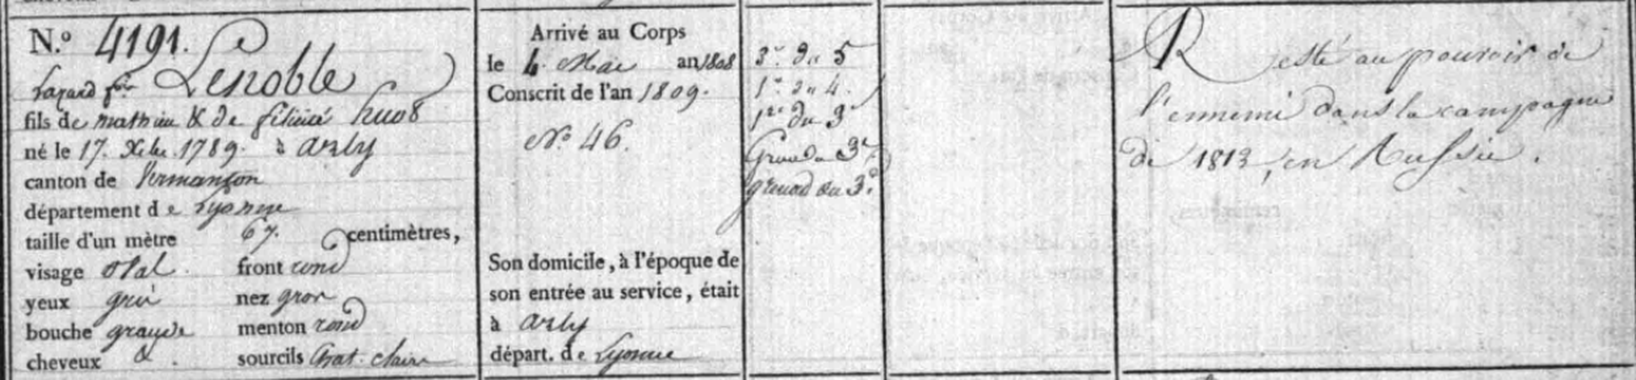 N.º 4191.
Lenoble
Lazard fois
fils de mathieu & de félicité huot
né le 17. Xbre 1789. à arly
canton de Vermanton
département de Lyonne
taille d'un mètre 67. centimètres,
visage oval. front rond
yeux gris nez gros
bouche grande menton rond
cheveux & sourcils Chat. claire
Arrivé au Corps
le 4. Mai an 1808
Conscrit de l'an 1809.
Nº 46.
Son domicile, à l'époque de
son entrée au service, était
à arly
départ. de Lyonne
3e du 5
1re du 4.
1re du 3e
Grenad. du 3e
grenad du 3e
Resté au pouvoir de
l'ennemi dans la campagne
de 1813, en Russie.